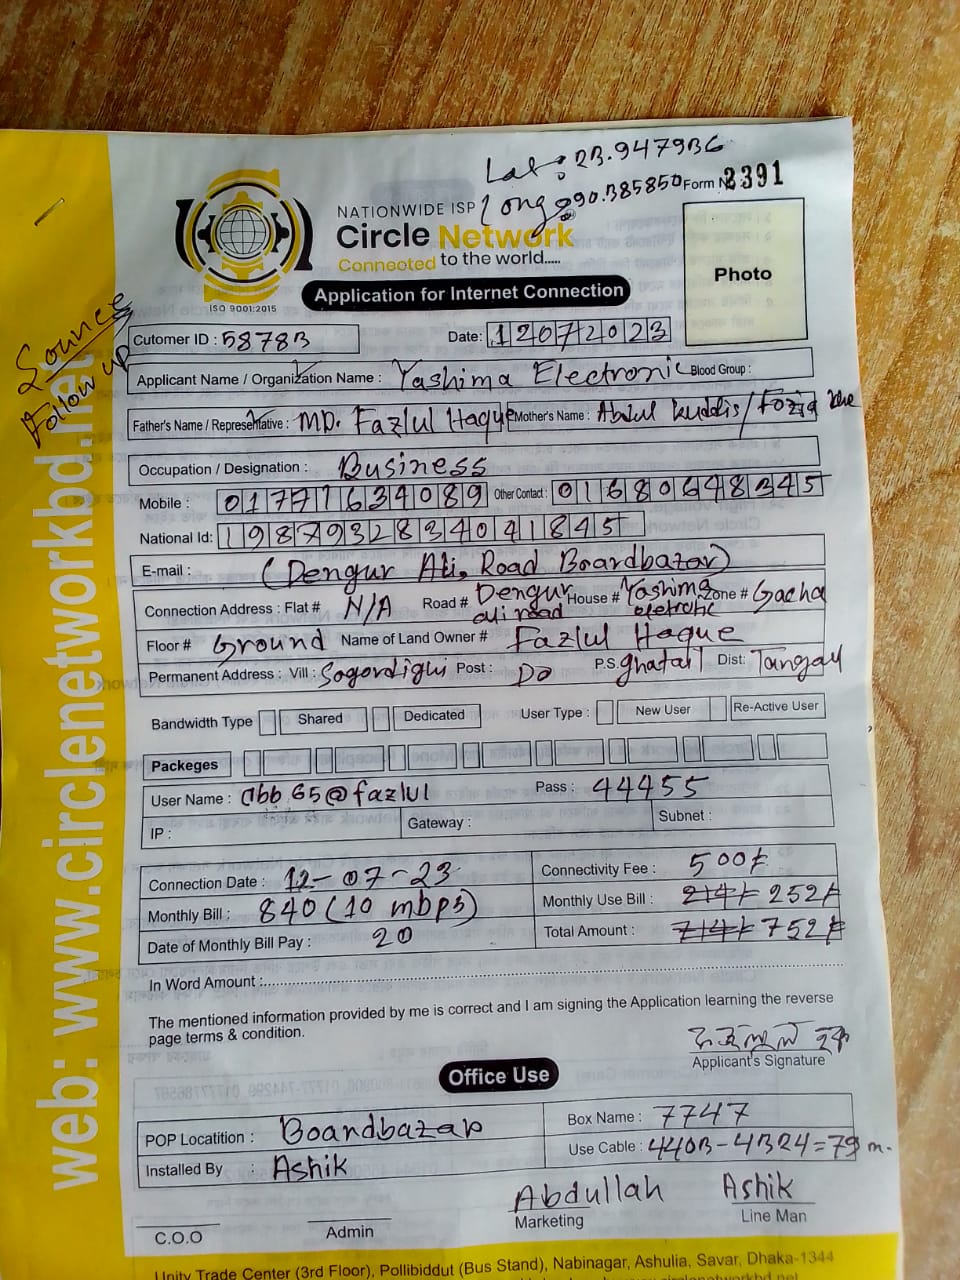 Lat: 23.947936
Long: 90.385850
Form No 2391
NATIONWIDE ISP
Circle Network
Connected to the world.....
ISO 9001:2015
Application for Internet Connection
Photo
Source
Follow up
web: www.circlenetworkbd.net
Cutomer ID : 58783
Date: 12072023
Applicant Name / Organization Name : Yashima Electronic Blood Group :
Father's Name / Representative : MD. Fazlul Haque Mother's Name : Abdul kuddis / Fozia
Occupation / Designation : Business
Mobile : 01771634089 Other Contact : 01680648345
National Id: 1987932834041845
E-mail : (Dengur Ali, Road Boardbazar)
Connection Address : Flat # N/A Road # Dengur ali road House # Yashima eletronic Zone # Gacha
Floor # Ground Name of Land Owner # Fazlul Haque
Permanent Address : Vill : Sogordigui Post : Do P.S. ghatail Dist: Tangail
Bandwidth Type Shared Dedicated User Type : New User Re-Active User
Packeges
User Name : abb65@fazlul Pass : 44455
IP : Gateway : Subnet :
Connection Date : 12-07-23 Connectivity Fee : 500/-
Monthly Bill : 840 (10 mbps) Monthly Use Bill : 241/- 252/-
Date of Monthly Bill Pay : 20 Total Amount : 741/- 752/-
In Word Amount :
The mentioned information provided by me is correct and I am signing the Application learning the reverse
page terms & condition.
ফজলুল হক
Applicant's Signature
Office Use
POP Locatition : Boardbazar Box Name : 7747
Installed By : Ashik Use Cable : 4403-4324=79 m.
Abdullah Ashik
C.O.O Admin Marketing Line Man
Unity Trade Center (3rd Floor), Pollibiddut (Bus Stand), Nabinagar, Ashulia, Savar, Dhaka-1344